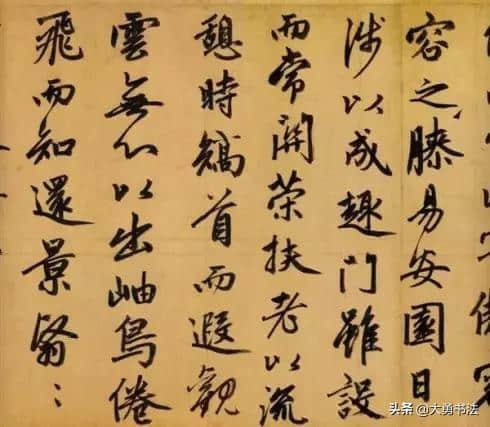 容之膝易安園日
涉以成趣門雖設
而常關策扶老以流
憩時矯首而遐觀
雲無心以出岫鳥倦
飛而知還景翳〻
头条 @大勇书法